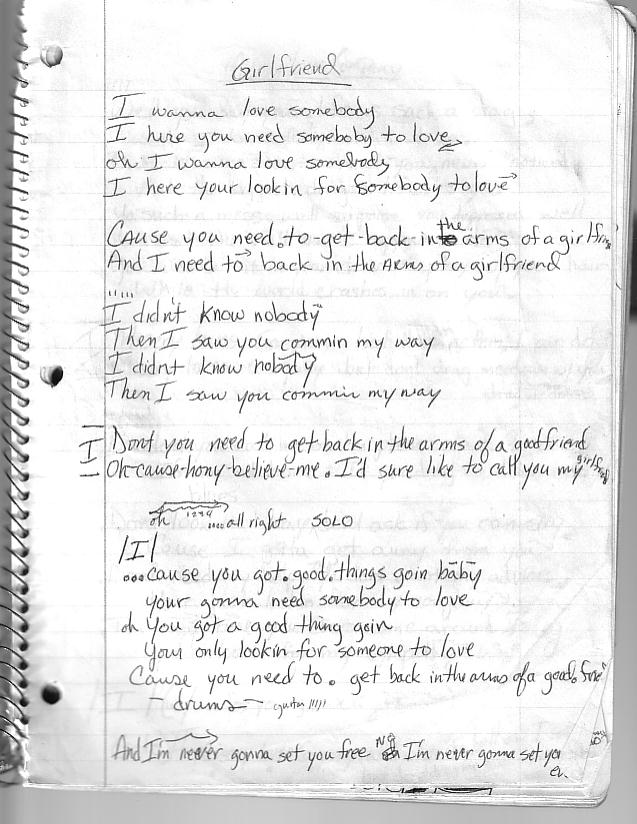 Girlfriend
I wanna love somebody
I here you need someboby to love
oh I wanna love somebody
I here your lookin for somebody to love
Cause you need.to-get-back-in the arms of a girlfrien
And I need to back in the Arms of a girlfriend
.....
I didn't know nobody
Then I saw you commin my way
I didnt know nobody
Then I saw you commin my way
I Dont you need to get back in the arms of a good friend
Oh-cause-hony-believe-me. I'd sure like to call you my girlfriend
oh 1234 ....all right SOLO
|I|
...cause you got.good.things goin baby
your gonna need somebody to love
oh You got a good thing goin
Your only lookin for someone to love
Cause you need to. get back in the arms of a good.frie
- drums - guitar /////
And I'm never gonna set you free No I'm never gonna set you